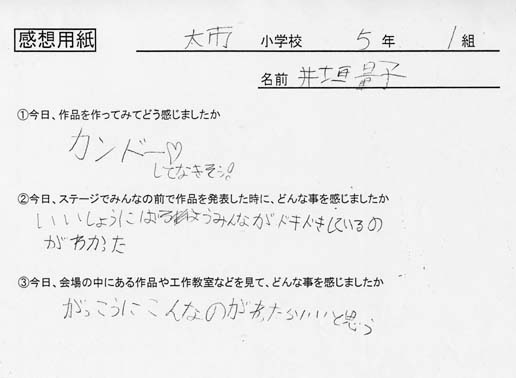 感想用紙 太市 小学校 5 年 1 組
名前 井垣量子
①今日、作品を作ってみてどう感じましたか
カンドー♡
してなきそう!
②今日、ステージでみんなの前で作品を発表した時に、どんな事を感じましたか
いいしょうに みんながドキドキしているの
がわかった
③今日、会場の中にある作品や工作教室などを見て、どんな事を感じましたか
がっこうにこんなのがあったらいいと思う